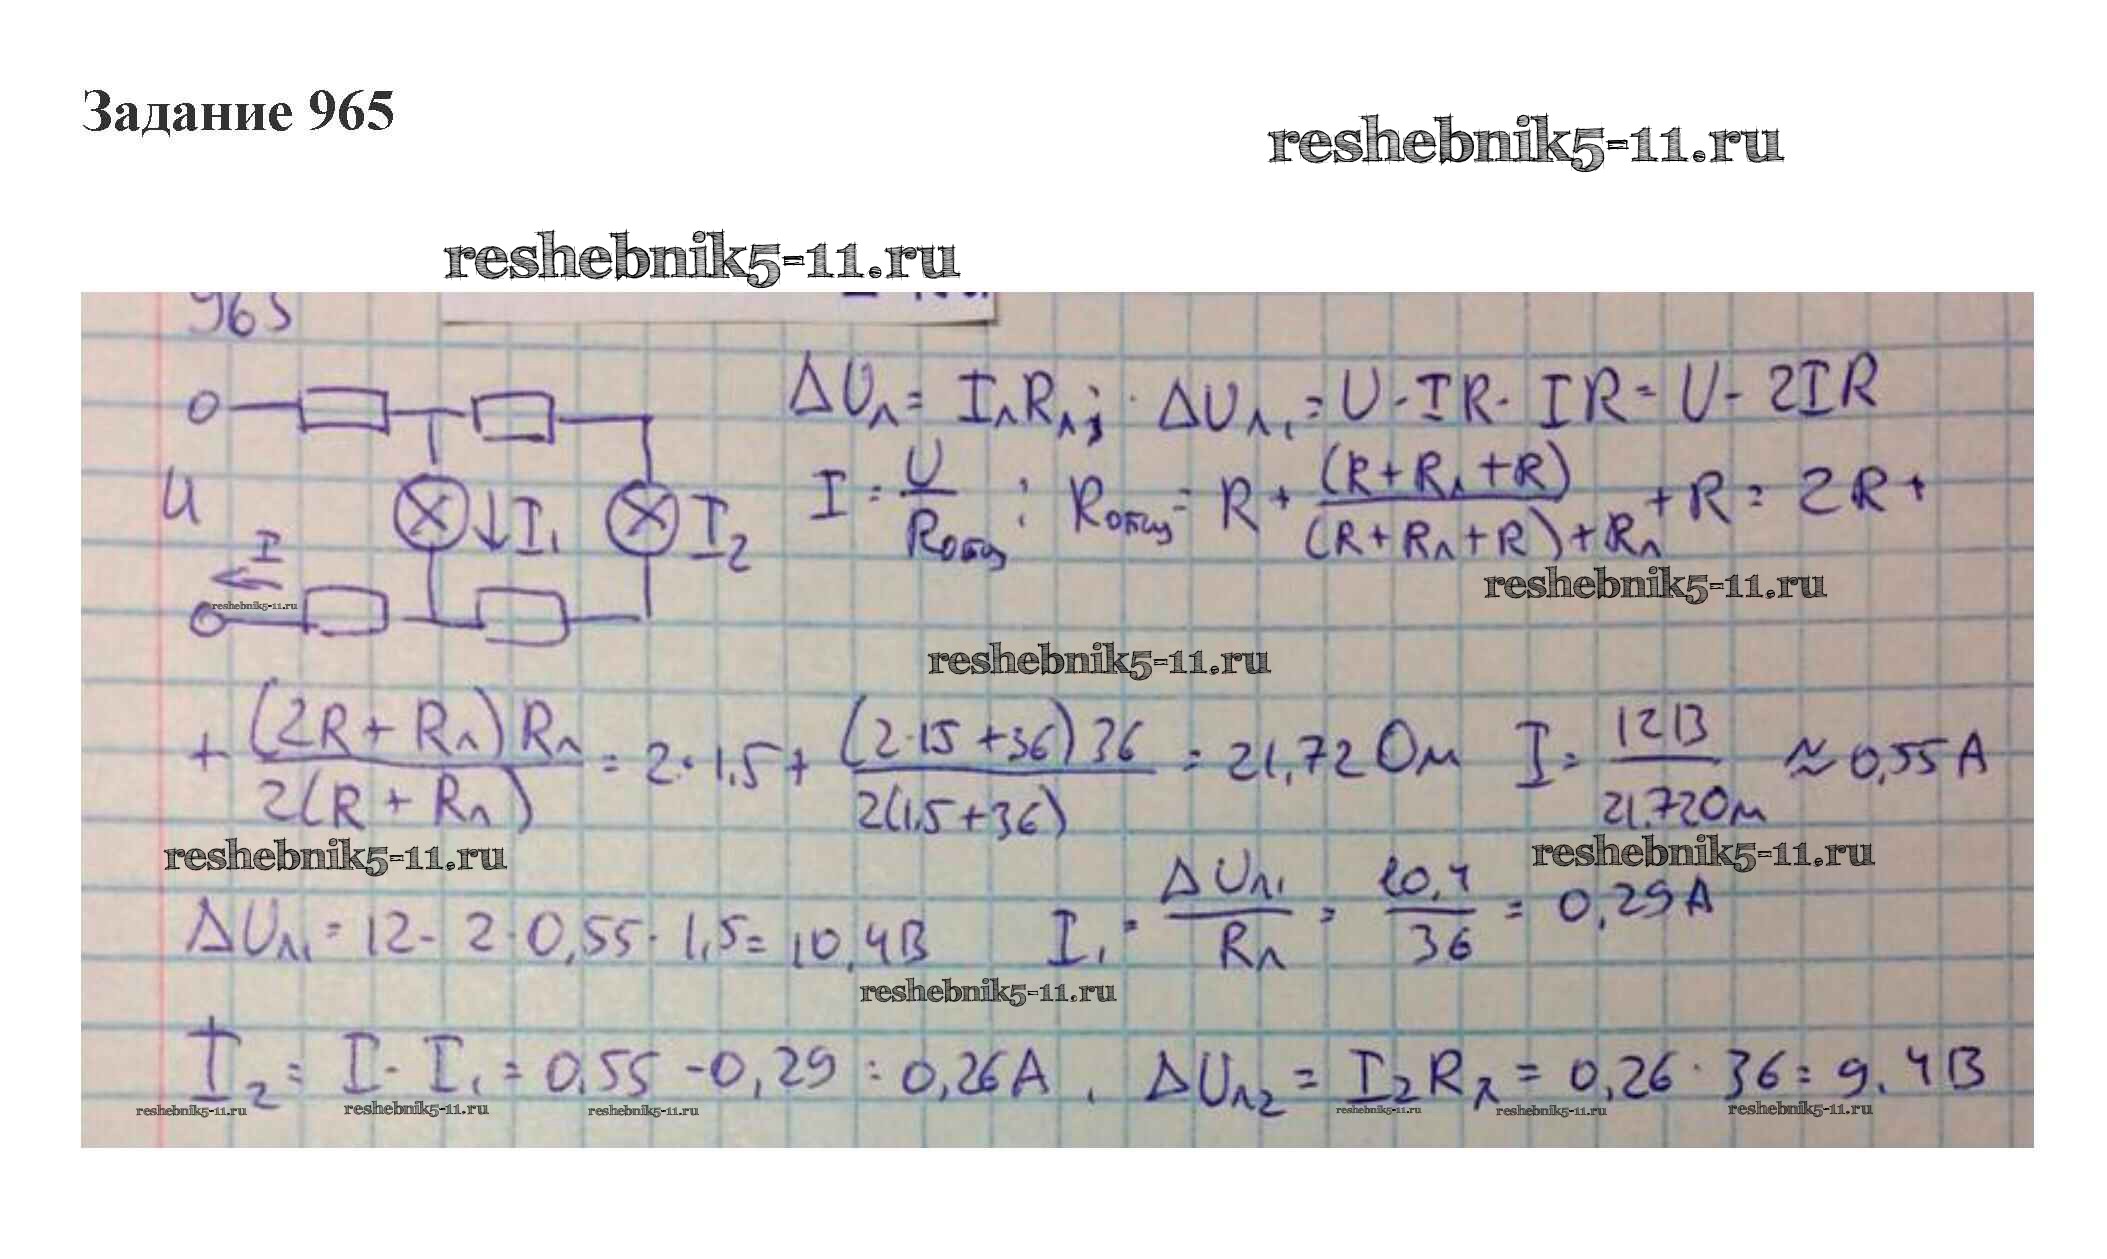 Задание 965
reshebnik5-11.ru
reshebnik5-11.ru
965
ΔUл = IлRл; ΔUл₁ = U - IR - IR = U - 2IR
U I I₁ I₂
I = U/Rобщ ; Rобщ = R + (R + Rл + R)/((R + Rл + R) + Rл) + R = 2R +
reshebnik5-11.ru
reshebnik5-11.ru
reshebnik5-11.ru
+ (2R + Rл)Rл/2(R + Rл) = 2·1.5 + (2·15 + 36)36/2(1.5 + 36) = 21,72 Ом I = 12В/21.72Ом ≈ 0,55 А
reshebnik5-11.ru
reshebnik5-11.ru
ΔUл₁ = 12 - 2·0,55·1,5 = 10,4В I₁ = ΔUл₁/Rл = 10,4/36 = 0,29А
reshebnik5-11.ru
I₂ = I - I₁ = 0.55 - 0,29 = 0,26А, ΔUл2 = I₂Rл = 0,26·36 = 9.4В
reshebnik5-11.ru reshebnik5-11.ru reshebnik5-11.ru reshebnik5-11.ru reshebnik5-11.ru reshebnik5-11.ru